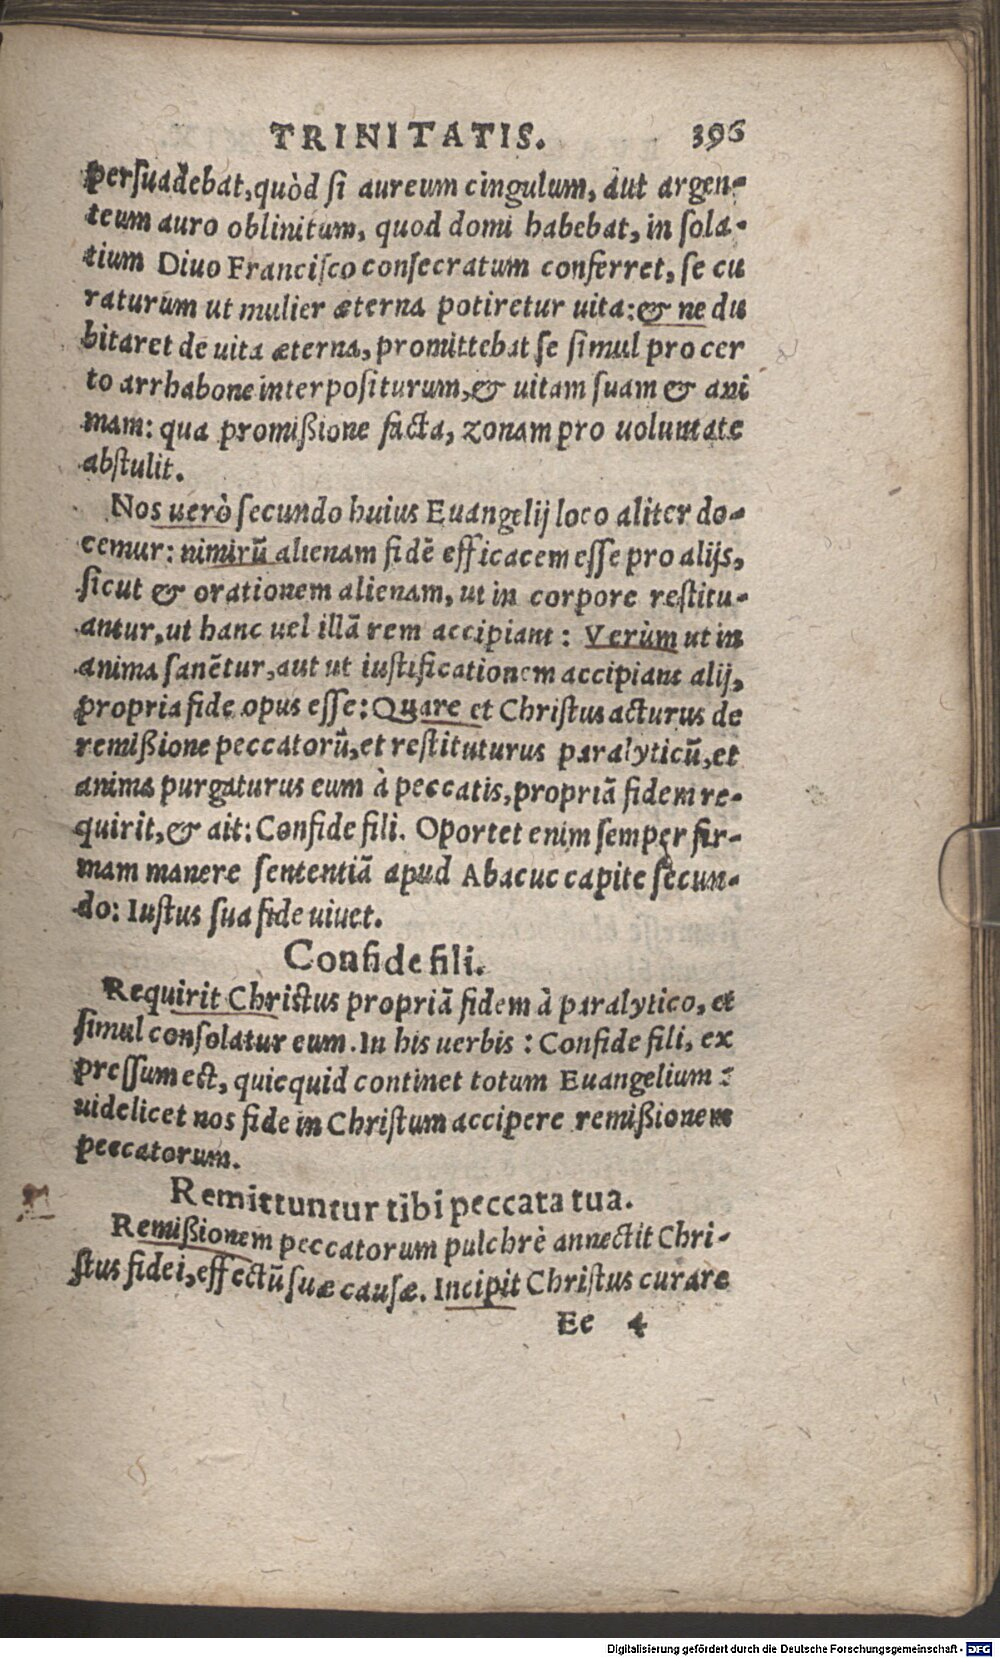 TRINITATIS. 396
persuadebat, quòd si aureum cingulum, aut argen-
teum auro oblinitum, quod domi habebat, in sola-
tium Diuo Francisco consecratum conferret, se cu
raturum ut mulier æterna potiretur uita: & ne du
bitaret de uita æterna, promittebat se simul pro cer
to arrhabone interpositurum, & uitam suam & ani
mam: qua promißione facta, zonam pro uoluntate
abstulit.
Nos uerò secundo huius Euangelij loco aliter do-
cemur: nimirū alienam fidē efficacem esse pro alijs,
sicut & orationem alienam, ut in corpore restitu-
antur, ut hanc uel illā rem accipiant: Verùm ut in
anima sanētur, aut ut iustificationem accipiant alij,
propria fide opus esse: Quare et Christus acturus de
remißione peccatorū, et restituturus paralyticū, et
anima purgaturus eum à peccatis, propriā fidem re-
quirit, & ait: Confide fili. Oportet enim semper fir-
mam manere sententiā apud Abacuc capite secun-
do: Iustus sua fide uiuet.
Confide fili.
Requirit Christus propriā fidem à paralytico, et
simul consolatur eum. In his uerbis: Confide fili, ex
pressum est, quicquid continet totum Euangelium:
uidelicet nos fide in Christum accipere remißionem
peccatorum.
Remittuntur tibi peccata tua.
Remißionem peccatorum pulchrè annectit Chri-
stus fidei, effectū suæ causæ. Incipit Christus curare
Ee 4
Digitalisierung gefördert durch die Deutsche Forschungsgemeinschaft - DFG